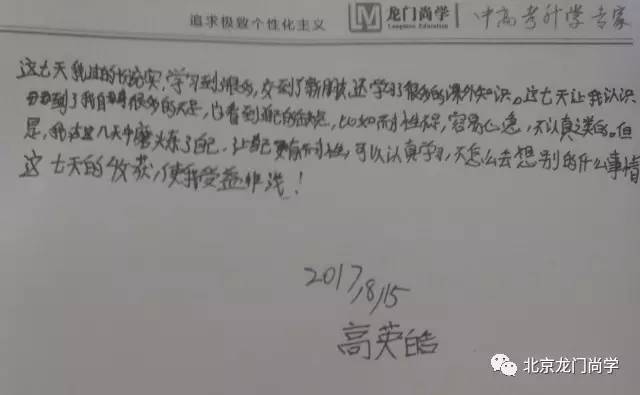 追求极致个性化主义
龙门尚学
Longmen Education
中高考升学专家
这七天我过的很充实,学习到了很多,交到了新朋友,还学习了很多的课外知识。这七天让我认识
到了我自身很多的不足,也看到自己的缺点,比如耐性不足,容易心急,不认真之类的。但
是,我在这几天中磨炼了自己,让自己更有耐性,可以认真学习,不怎么去想别的什么事情
这七天的收获,使我受益非浅!
2017,8,15
高英皓
北京龙门尚学